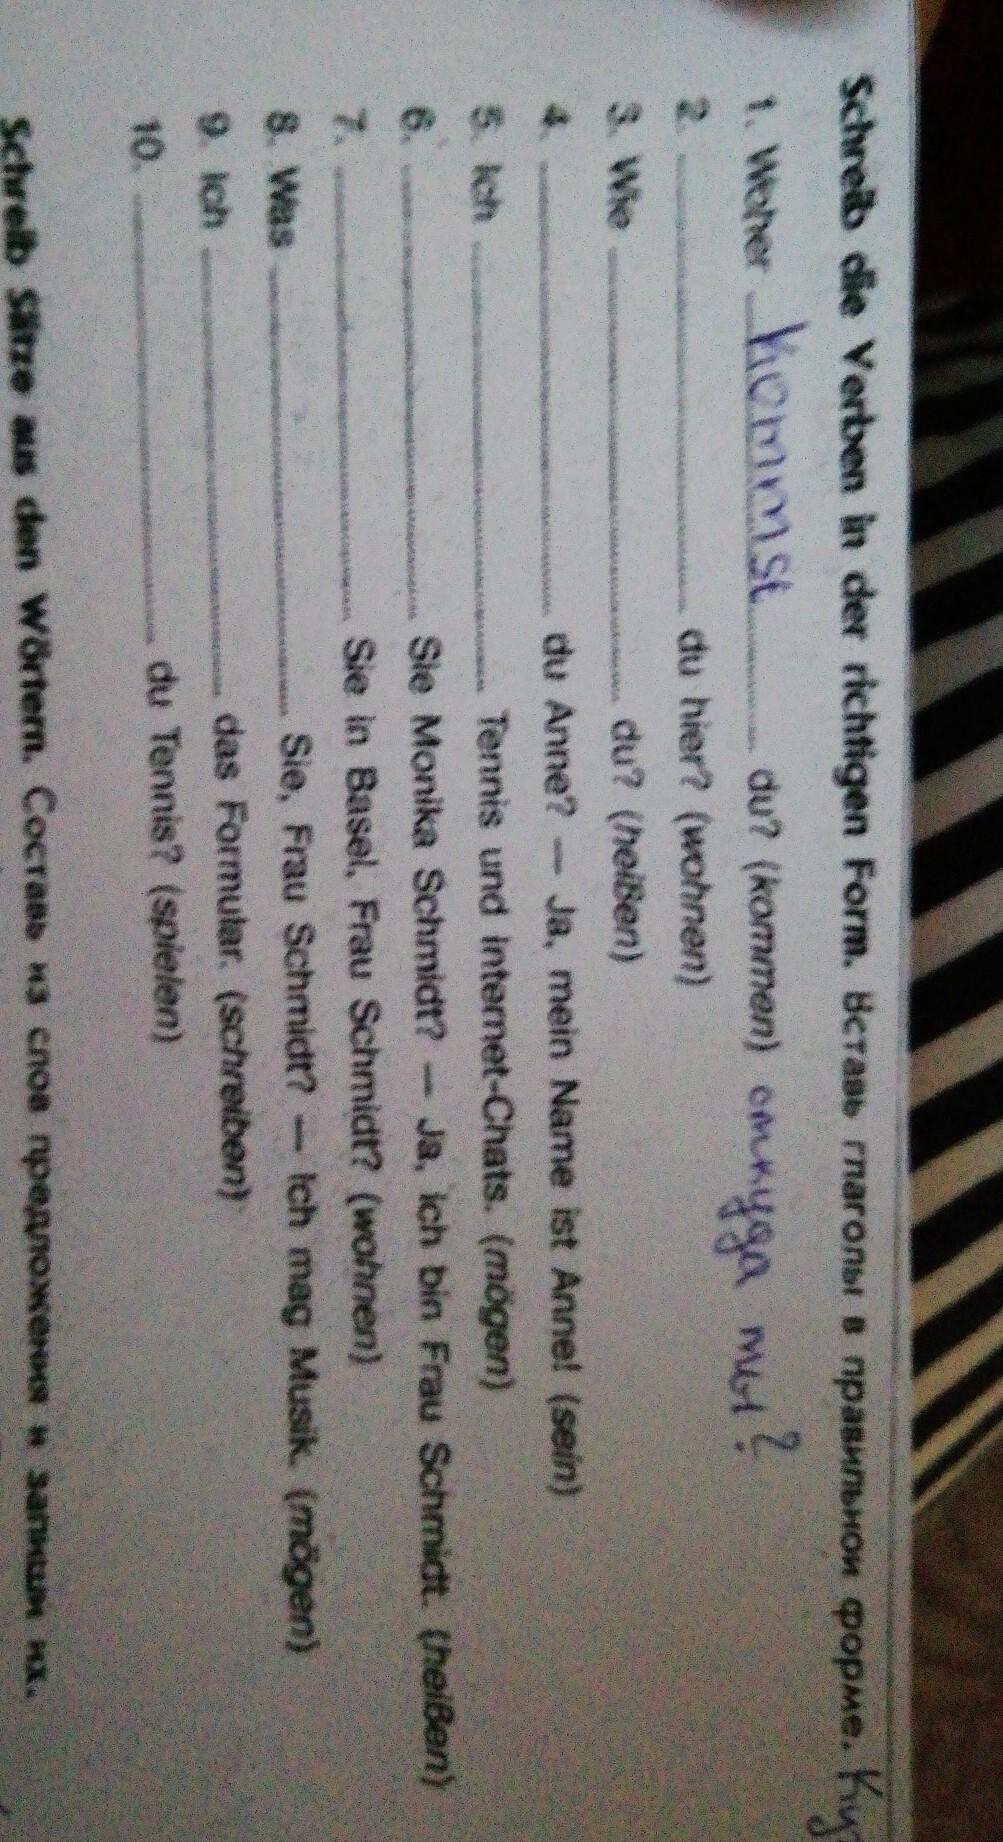 Schreib die Verben in der richtigen Form. Вставь глаголы в правильной форме.
1. Woher kommst du? (kommen) откуда ты?
2. ____________ du hier? (wohnen)
3. Wie ____________ du? (heißen)
4. ____________ du Anne? — Ja, mein Name ist Anne! (sein)
5. Ich ____________ Tennis und Internet-Chats. (mögen)
6. ____________ Sie Monika Schmidt? — Ja, ich bin Frau Schmidt. (heißen)
7. ____________ Sie in Basel, Frau Schmidt? (wohnen)
8. Was ____________ Sie, Frau Schmidt? — Ich mag Musik. (mögen)
9. Ich ____________ das Formular. (schreiben)
10. ____________ du Tennis? (spielen)
Schreib Sätze aus den Wörtern. Составь из слов предложения и запиши их.